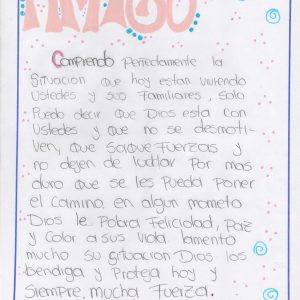 AMIGO
Comprendo perfectamente la
Situacion que hoy estan viviendo
Ustedes y sus Familiares, Solo
Puedo decir que Dios esta con
Ustedes y que no se desmoti-
ven, que Saque Fuerzas y
no dejen de luchar Por mas
duro que se les Pueda Poner
el Camino. en algun mometo
Dios le Pobra Felicidad, Paz
y Color a sus vida lamento
mucho su situacion Dios los
bendiga y Proteja hoy y
Siempre, mucha Fuerza.